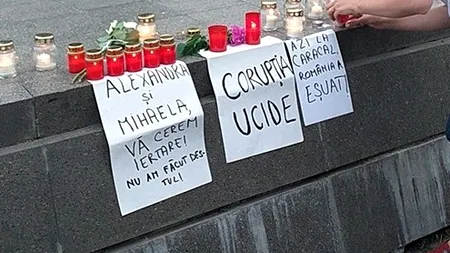 ALEXANDRA
ȘI
MIHAELA,
VĂ CEREM
IERTARE!
NU AM FĂCUT DES-
TUL!
CORUPȚIA
UCIDE
AZI LA
CARACAL,
ROMÂNIA A
EȘUAT!